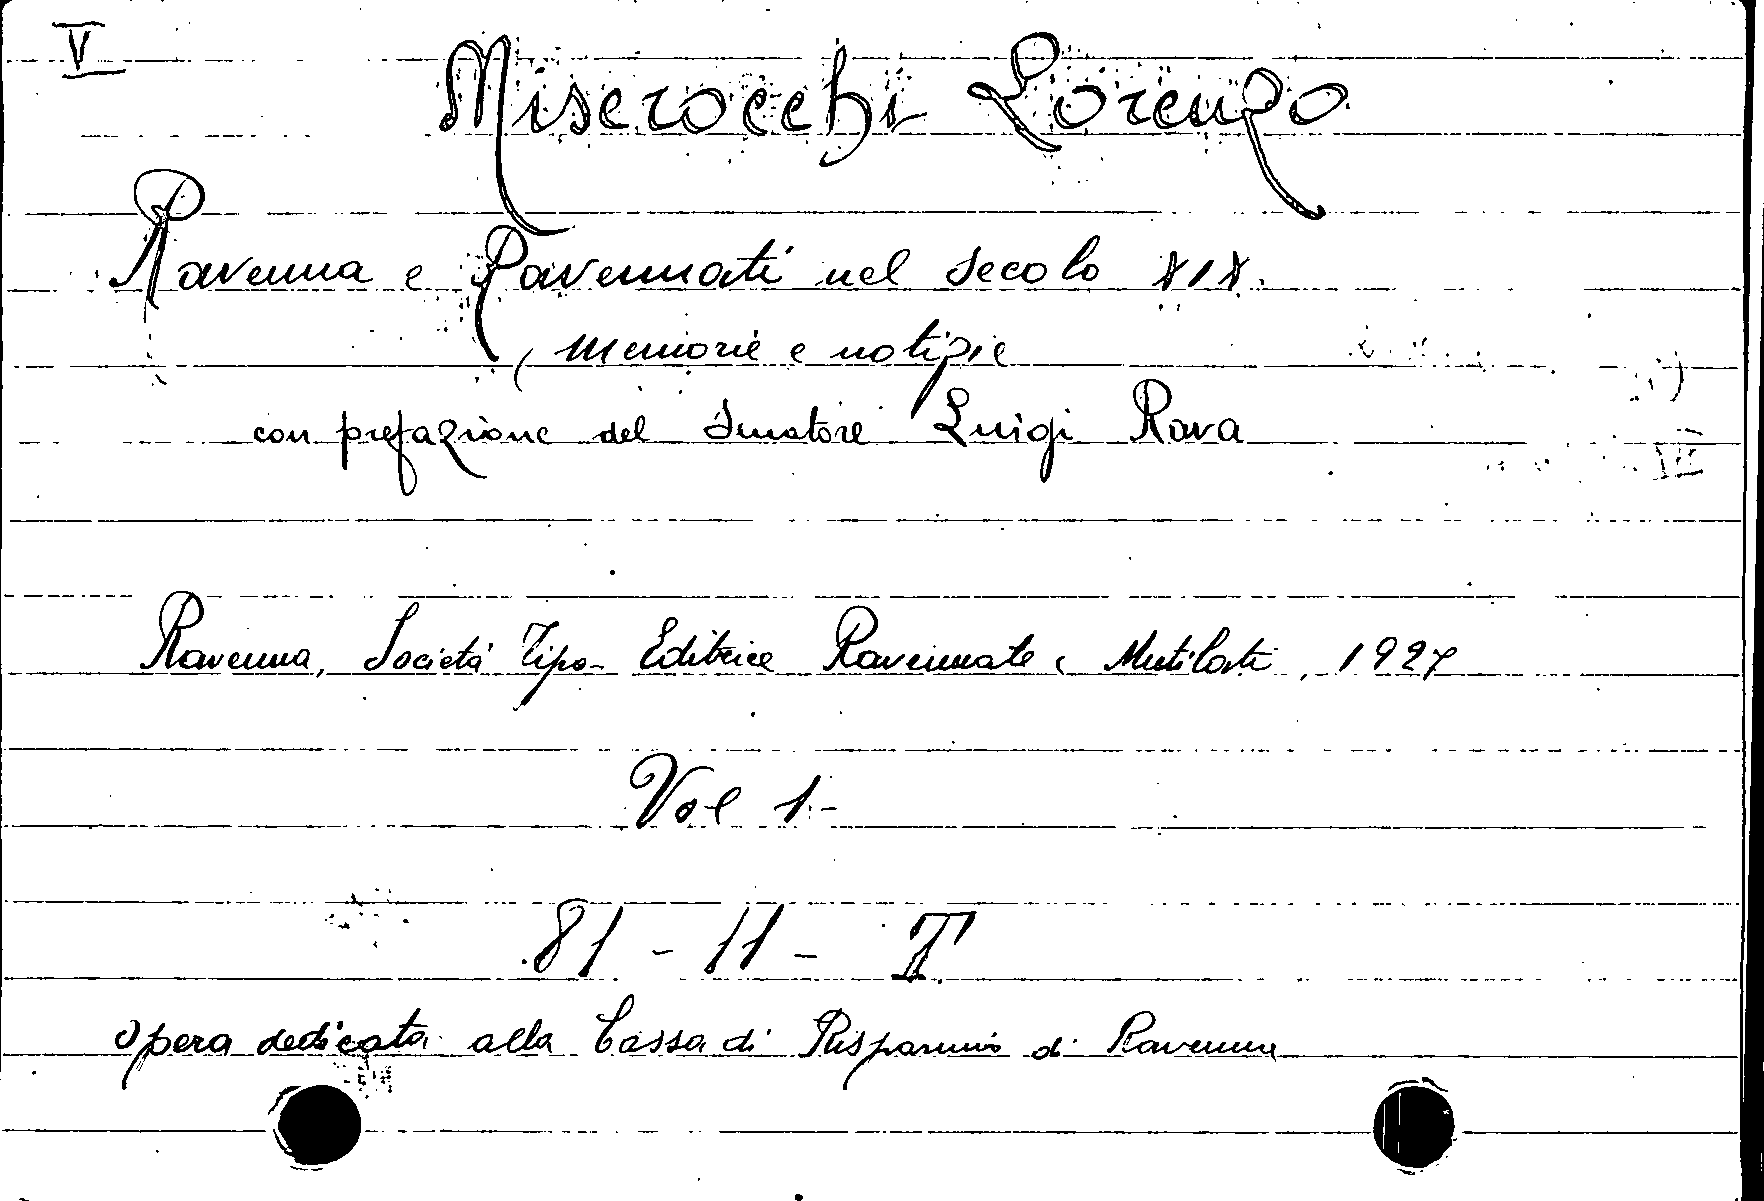 V
Miserocchi Lorenzo
Ravenna e Ravennati nel secolo XIX.
( memorie e notizie )
con prefazione del Senatore Luigi Rava
Ravenna, Società Tipo- Editrice Ravennate e Mutilati, 1927
Vol 1-
81 - 11 - T
opera dedicata alla Cassa di Risparmio di Ravenna